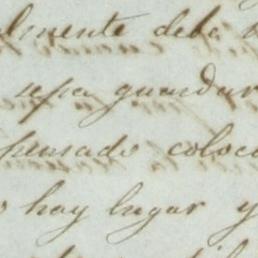 lmente debe
sepa guardar
pensado coloca
hay lugar y